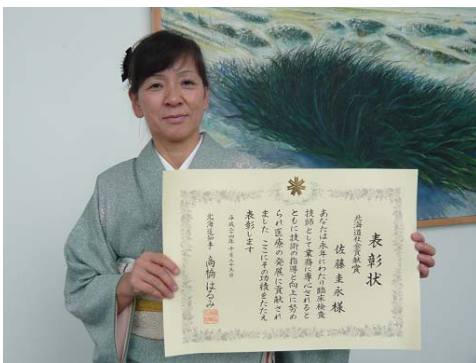 表彰状
北海道社会貢献賞
佐藤圭永様
あなたは永年にわたり臨床検査
技師として業務に専心されると
ともに技術の指導と向上に努め
られ医療の発展に貢献され
ました ここにその功績をたたえ
表彰します
平成二十四年十月二十五日
北海道知事 高橋はるみ